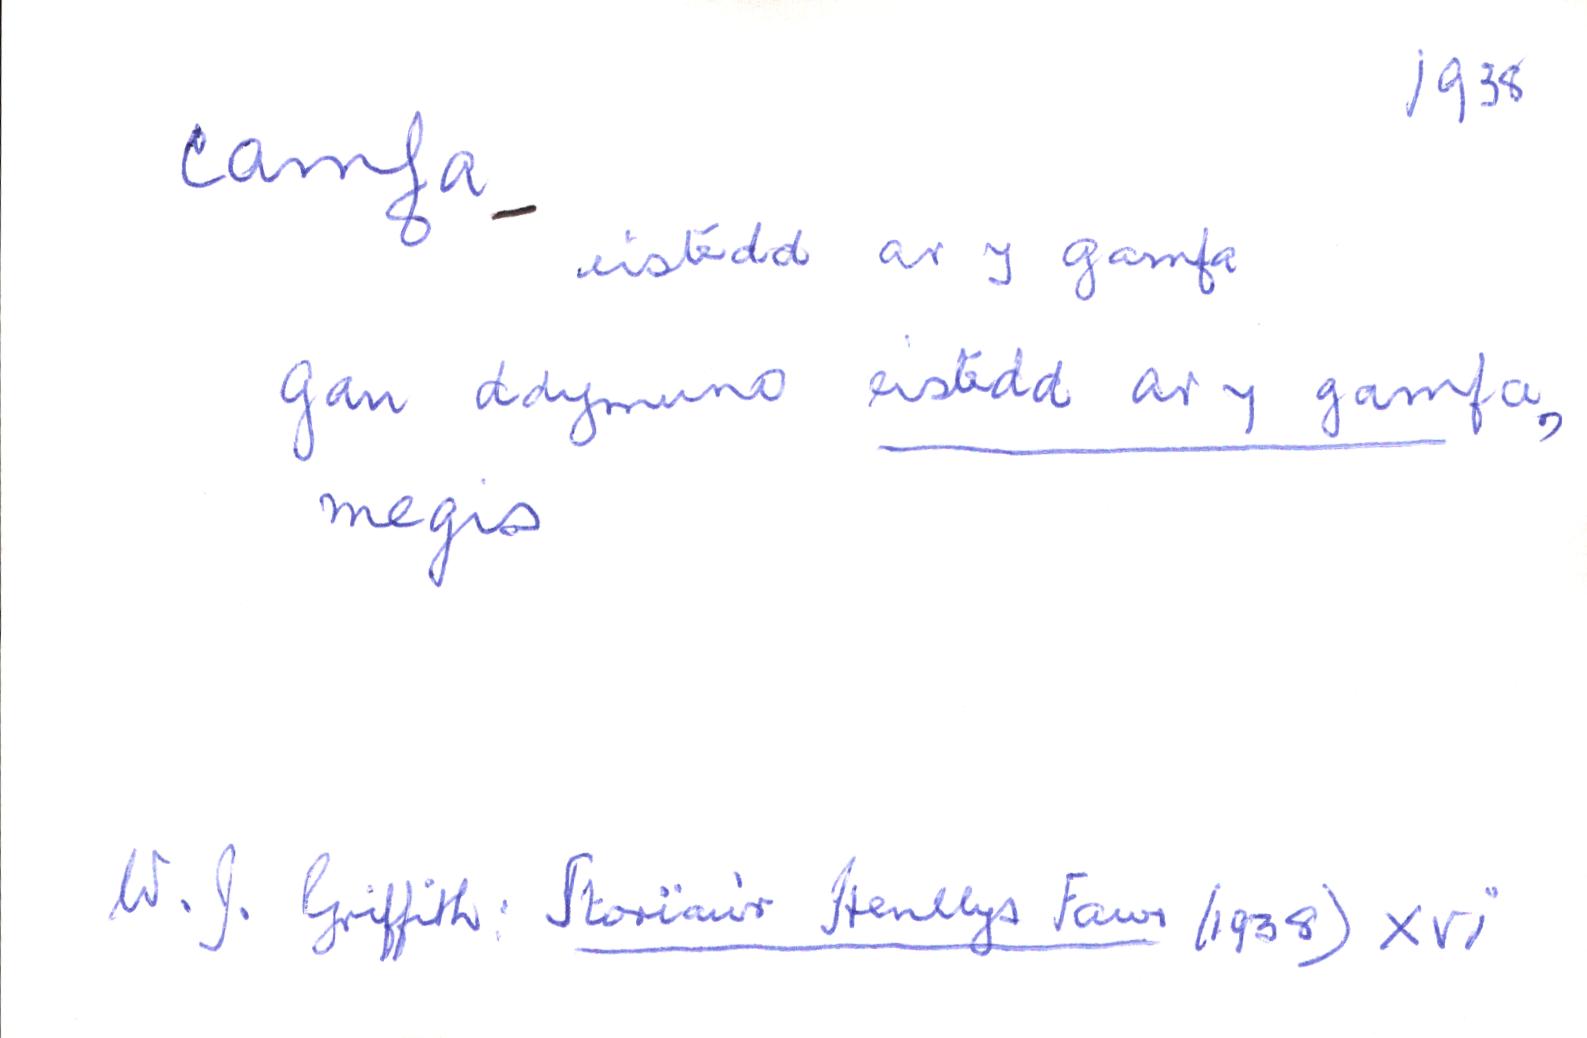 1938
camfa -
eistedd ar y gamfa
gan ddymuno eistedd ar y gamfa,
megis
W. J. Griffith: Storïau'r Henllys Fawr (1938) xvi